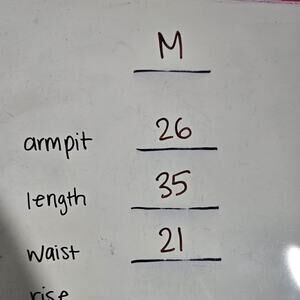 M
armpit 26
length 35
waist 21
rise